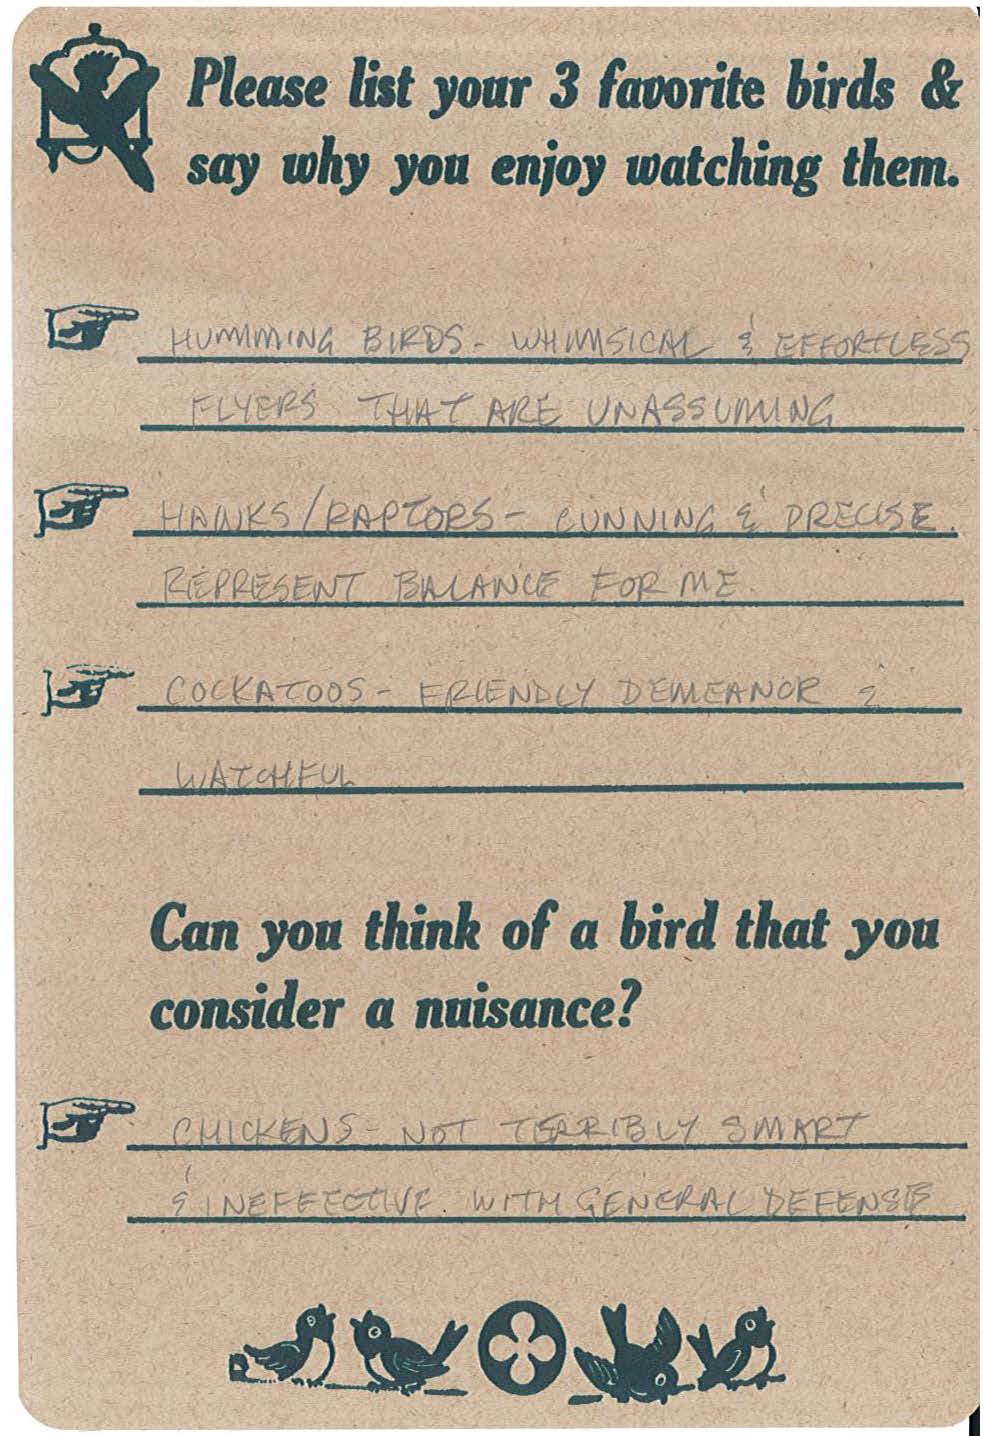 Please list your 3 favorite birds &
say why you enjoy watching them.
HUMMING BIRDS - WHIMSICAL & EFFORTLESS
FLYERS THAT ARE UNASSUMING
HAWKS/RAPTORS - CUNNING & PRECISE.
REPRESENT BALANCE FOR ME.
COCKATOOS - FRIENDLY DEMEANOR &
WATCHFUL
Can you think of a bird that you
consider a nuisance?
CHICKENS - NOT TERRIBLY SMART
& INEFFECTIVE. WITH GENERAL DEFENSE